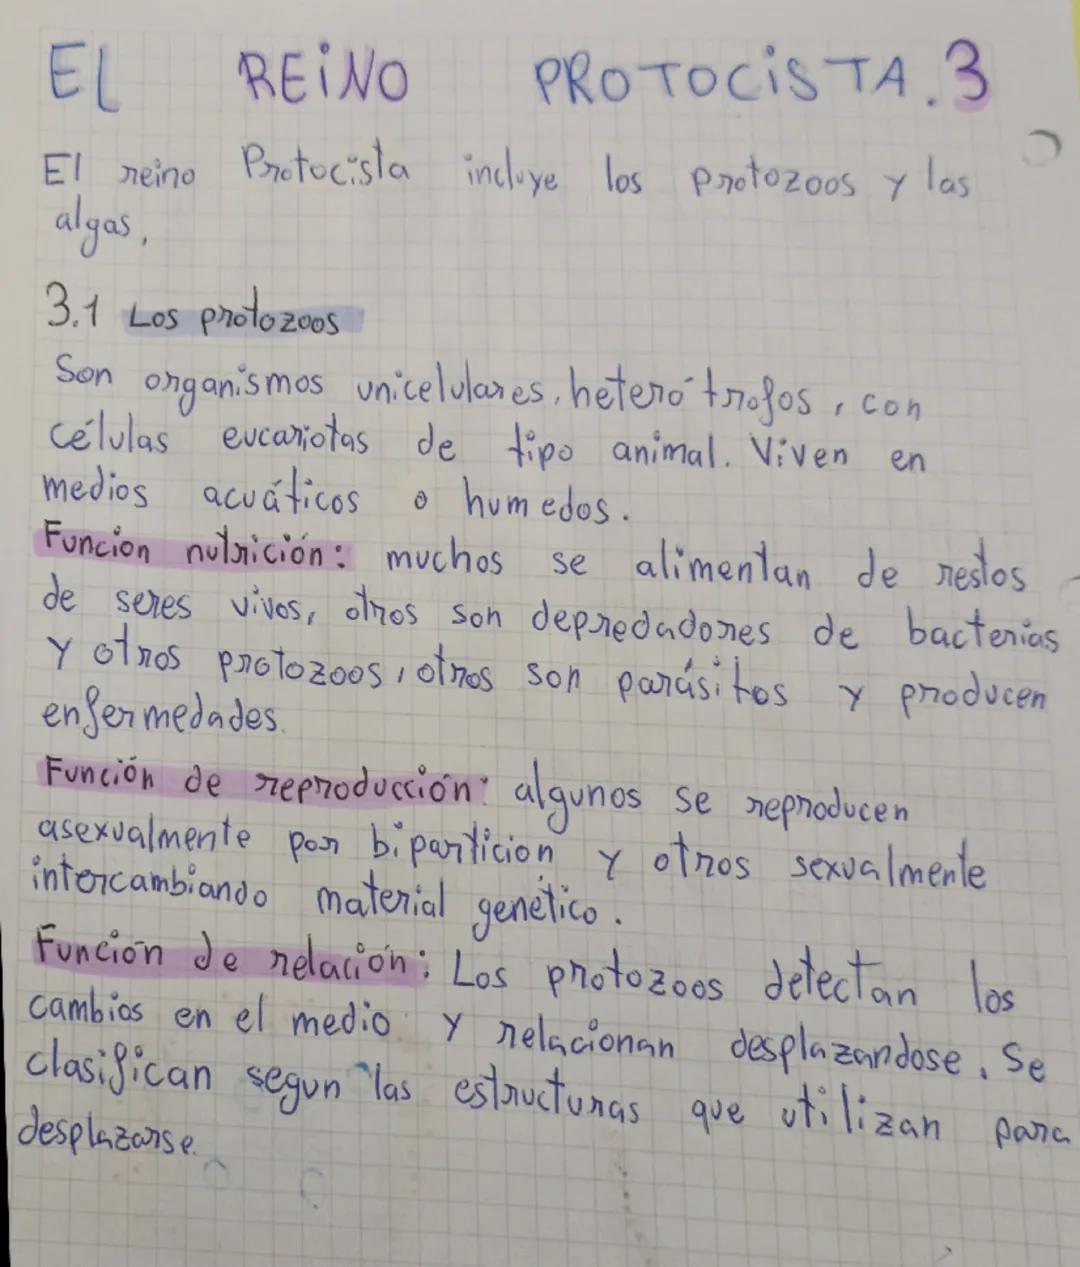 EL REINO PROTOCISTA.3
El reino Protocista incluye los protozoos y las
algas,
3.1 Los protozoos
Son organismos unicelulares, heterótrofos, con
células eucariotas de tipo animal. Viven en
medios acuáticos o humedos.
Funcion nutrición: muchos se alimentan de restos
de seres vivos, otros son depredadores de bacterias
y otros protozoos, otros son parásitos y producen
enfermedades.
Función de reproducción: algunos se reproducen
asexualmente por bipartición y otros sexualmente
intercambiando material genético.
Función de relación: Los protozoos detectan los
cambios en el medio y relacionan desplazandose. Se
clasifican segun las estructuras que utilizan para
desplazarse.